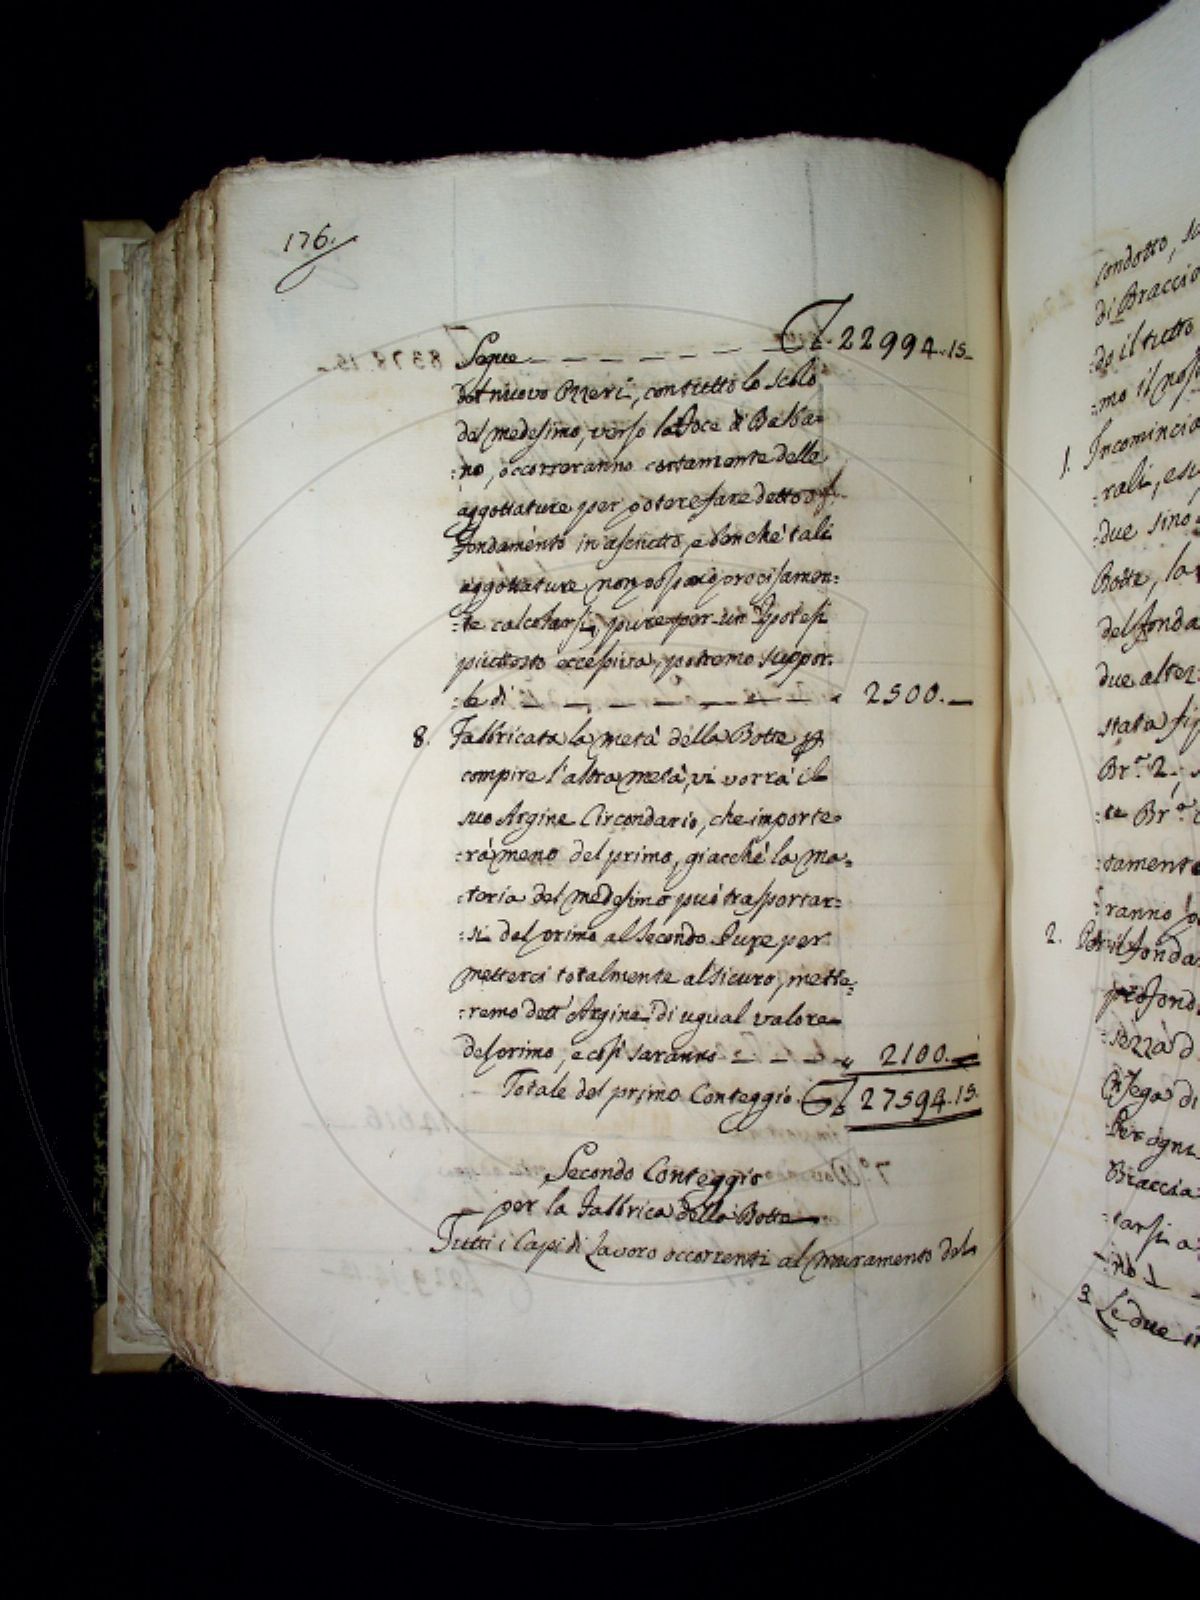 176.
Segue — — — — — — — 22994.15
del nuovo Ozzeri, con tutto lo scolo
del medesimo, verso la Foce di Balba=
:no, occorreranno certamente delle
aggottature per potere fare detto
fondamento in asciutto, e benchè tali
aggottature non possano precisamen:
:te calcolarsi, pure per un Ipotesi
piuttosto eccessiva, potremo suppor:
:le di — — — — — — — 2500.—
8. Fabbricata la metà della Botte p
compire l'altra metà, vi vorrà il
suo Argine Circondario, che importe=
:rà meno del primo, giacchè la ma=
:teria del medesimo può trasportar:
:si del primo al secondo. Pure per
metterci totalmente al sicuro, mette=
:remo dett'Argine di ugual valore
del primo, e così saranno — — — — 2100.—
Totale del primo Conteggio. 27594.15.
Secondo Conteggio
per la Fabbrica della Botte
Tutti i Capi di Lavoro occorrenti al muramento del
condotto,
di Braccio
do il tutto
:mo il
1. Incomincia
:rali,
:due sino
Botte, la
del fonda
due altez:
stata
Br.ª 2.
:te Br.ª
:tamente
:ranno
2. Per il fonda
profond
:sezza d
Per ogni
Braccia
:tarsi a
3. Le due